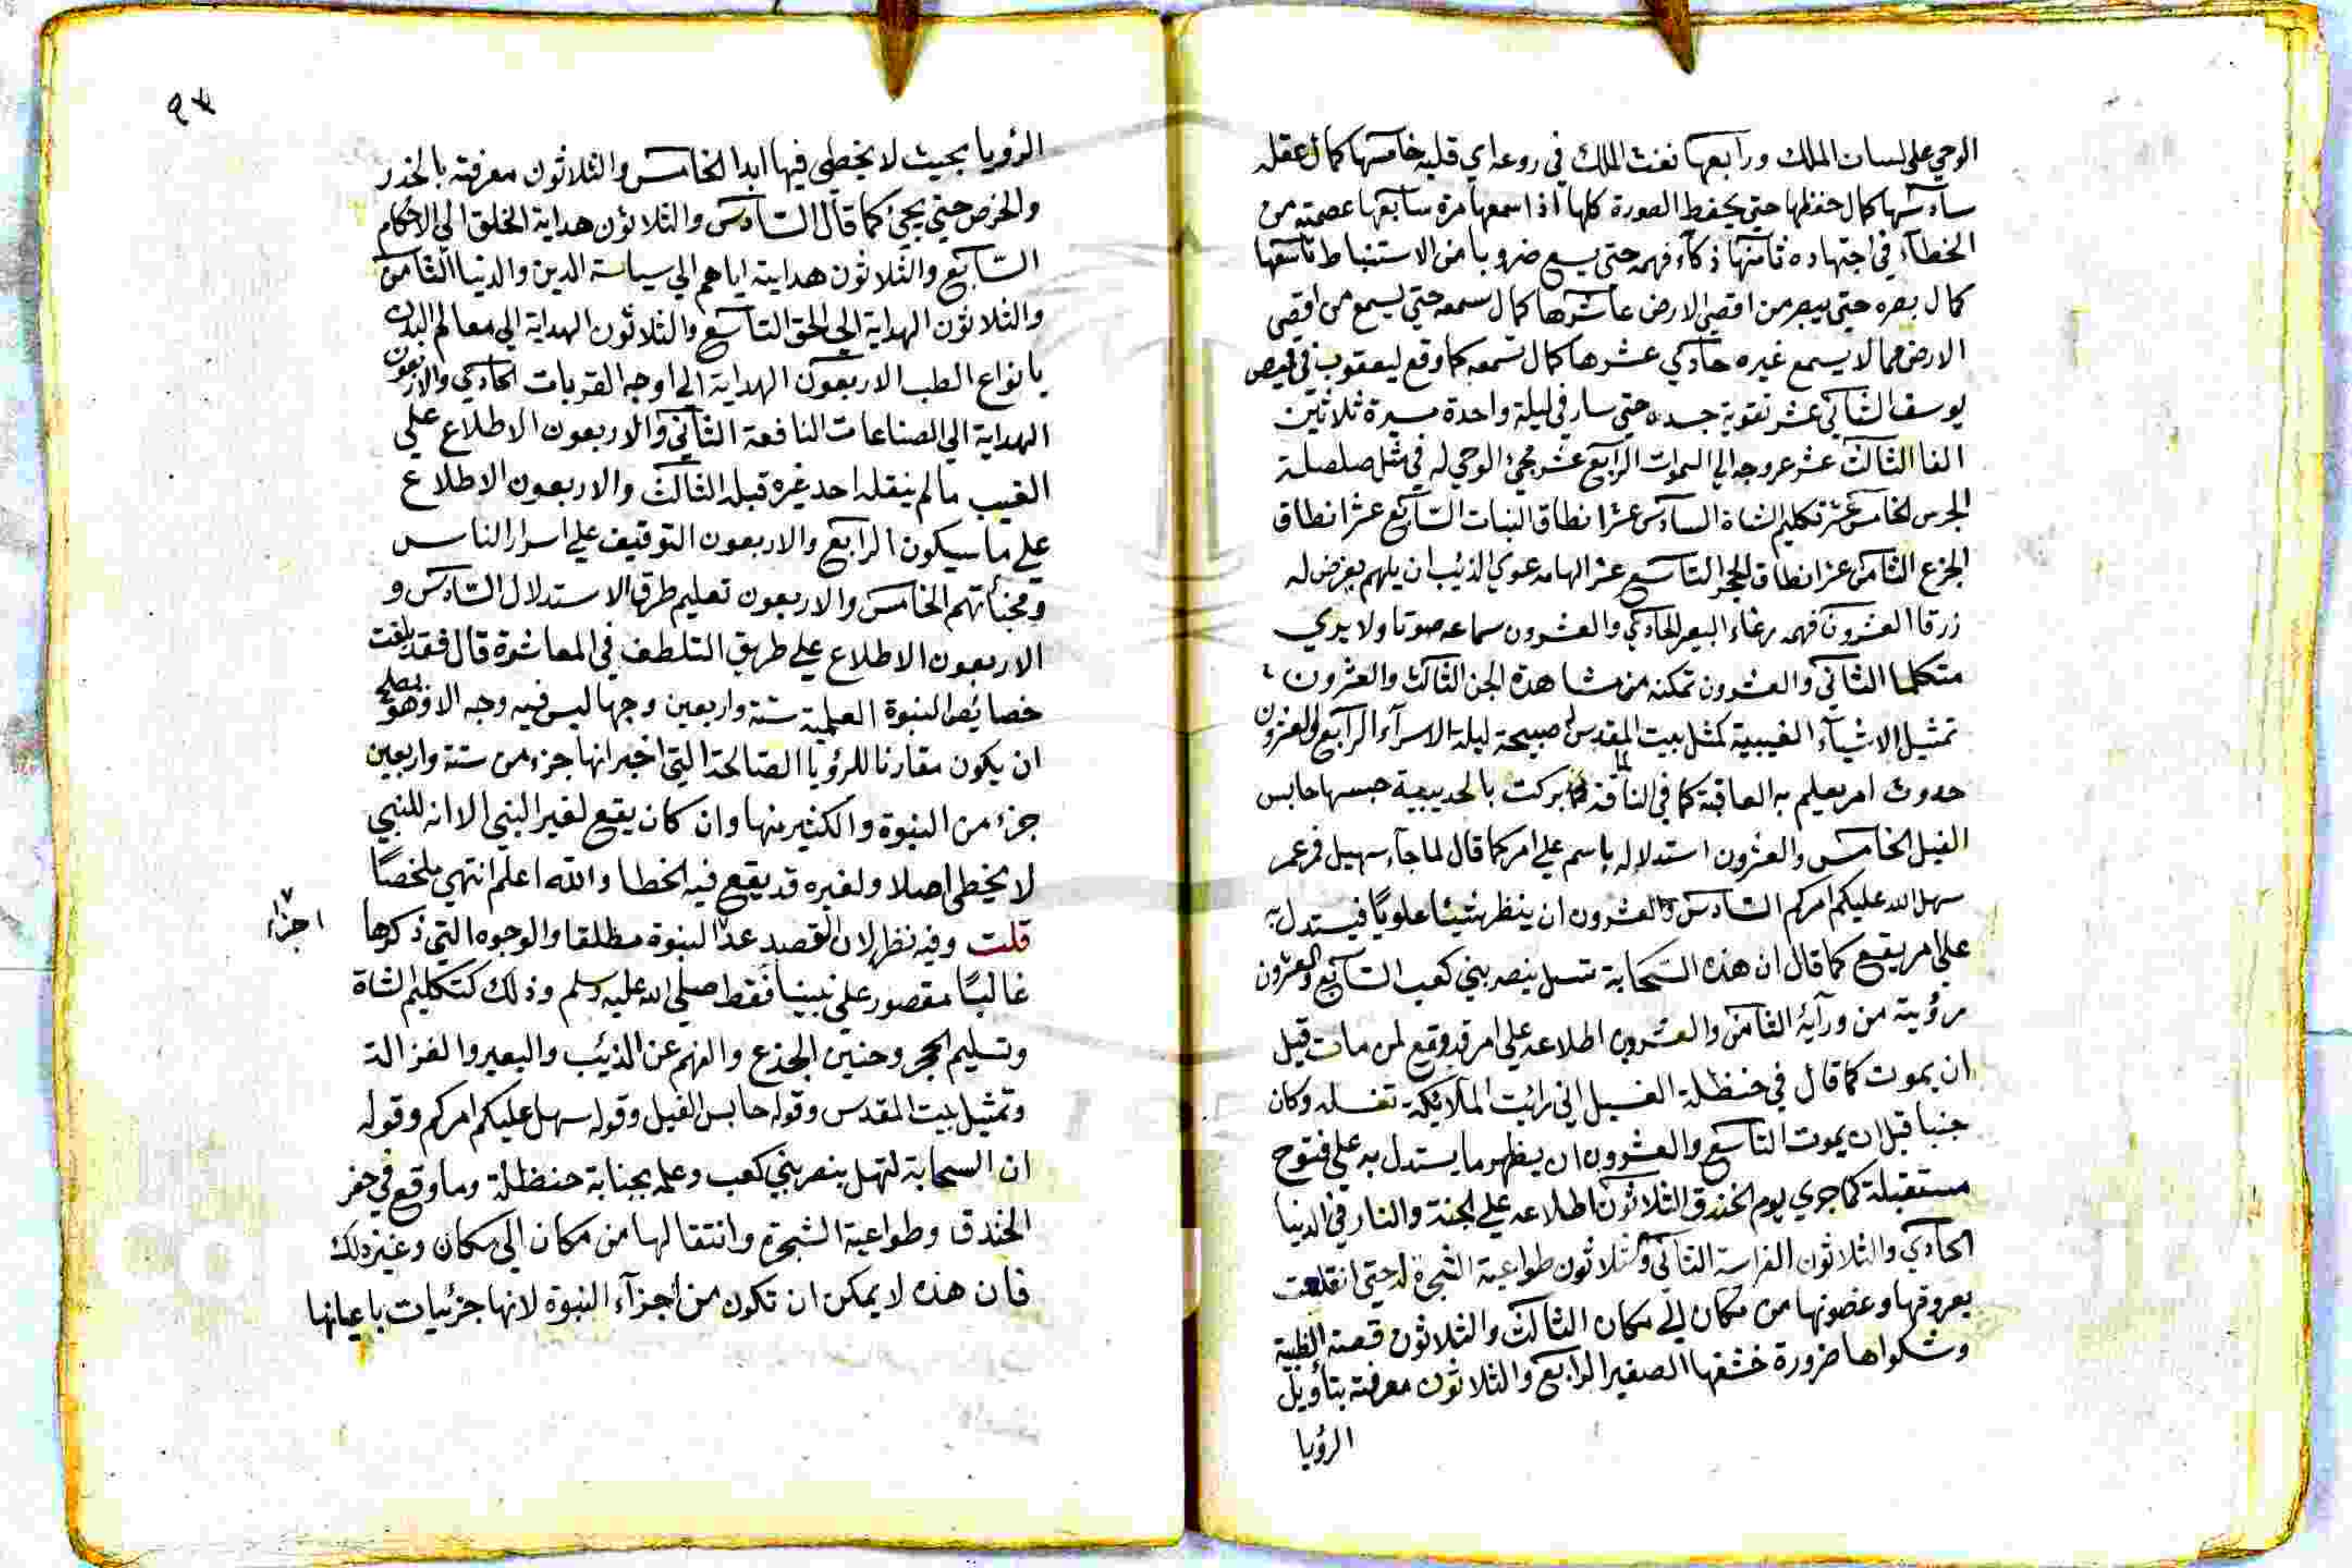 الوحي على لسان الملك ورابعها نفث الملك في روعه اي قلبه خامسها كمال عقله
سادسها كمال حفظها حتى يحفظ الصورة كلها اذا سمعها مرة سابعها عصمته من
الخطاء في اجتهاده ثامنها ذكاء فهمه حتى يسع ضروبا من الاستنباط تاسعها
كمال بصره حتى يبصر من اقصى الارض عاشرها كمال سمعه حتى يسمع من اقصى
الارض مما لا يسمع غيره حادي عشرها كمال شمعه كما وقع ليعقوب في قميص
يوسف الثاني عشر تقوية جسده حتى سار في ليلة واحدة مسيرة ثلاثين
الفا الثالث عشر عروجه الي السموات الرابع عشر مجئ الوحي له في مثل صلصلة
الجرس الخامس عشر تكليم الشاة السادس عشر انطاق النبات السابع عشر انطاق
الجزع الثامن عشر انطاق الحجر التاسع عشر الهامه عوي الذئب ان يلهم يفرض له
زرقا العشرون فهمه رغاء البعير الحادي والعشرون سماعه صوتا ولا يري
متكلما الثاني والعشرون تمكنه من مشاهدة الجن الثالث والعشرون
تمثيل الاشياء الغيبية كمثل بيت المقدس صبيحة ليلة الاسراء الرابع والعشرون
حدوث امر يعلم به العاقبة كما في الناقة لما بركت بالحديبية حبسها حابس
الفيل الخامس والعشرون استدلاله باسم علي امر كما قال لما جاء سهيل فزعم
سهل الله عليكم امركم السادس والعشرون ان ينظر شيئا علويا فيستدل به
على امر يقع كما قال ان هذه السحابة تسهل بنصر بني كعب السابع والعشرون
رؤيته من ورآئه الثامن والعشرون اطلاعه علي امر قد وقع لمن مات قبل
ان يموت كما قال في حنظلة الغسيل اني رائيت الملائكة تغسله وكان
جنبا قبل ان يموت التاسع والعشرون ان يظهر ما يستدل به علي فتوح
مستقبلة كما جري يوم الخندق الثلاثون اطلاعه علي الجنة والنار في الدنيا
الحادي والثلاثون الفراسة الثاني والثلاثون طواعية الشجرة له حتى انقلعت
بعروقها وغصونها من مكان الي مكان الثالث والثلاثون قصة الظبية
وشكواها ضرورة خشفها الصغير الرابع والثلاثون معرفته بتأويل
الرؤيا
٩٧
الرؤيا بحيث لا يخطي فيها ابدا الخامس والثلاثون معرفته بالحذر
والخرص حتى يجئ كما قال السادس والثلاثون هداية الخلق الي الاحكام
السابع والثلاثون هدايته اياهم الي سياسة الدين والدنيا الثامن
والثلاثون الهداية الي الحق التاسع والثلاثون الهداية الي معالم البدن
بانواع الطب الاربعون الهداية الي اوجه القربات الحادي والاربعون
الهداية الي الصناعات النافعة الثاني والاربعون الاطلاع علي
الغيب مالم ينقله احد غيره قبله الثالث والاربعون الاطلاع
علي ما سيكون الرابع والاربعون التوقيف علي اسرار الناس
ومخبأتهم الخامس والاربعون تعليم طرق الاستدلال السادس و
الاربعون الاطلاع علي طريق التلطف في المعاشرة قال فقد بلغت
خصائص النبوة العلمية ستة واربعين وجها ليس فيه وجه الا وهو يصلح
ان يكون مقارنا للرؤيا الصالحة التي اخبر انها جزء من ستة واربعين
جزء من النبوة والكثير منها وان كان يقع لغير النبي الا انه للنبي
لا يخطى اصلا ولغيره قد يقع فيه الخطا والله اعلم انتهي ملخصا
قلت وفيه نظر لان القصد عد النبوة مطلقا والوجوه التي ذكرها
اجزاء
غالبا مقصور علي نبينا فقط صلي الله عليه وسلم وذلك كتكليم الشاة
وتسليم الحجر وحنين الجذع والفهم عن الذئب والبعير والغزالة
وتمثيل بيت المقدس وقوله حابس الفيل وقوله سهل عليكم امركم وقوله
ان السحابة لتهل بنصر بني كعب وعلمه بجنابة حنظلة وما وقع في حفر
الخندق وطواعية الشجرة وانتقالها من مكان الي مكان وغير ذلك
فان هذه لا يمكن ان تكون من اجزآء النبوة لانها جزئيات باعيانها